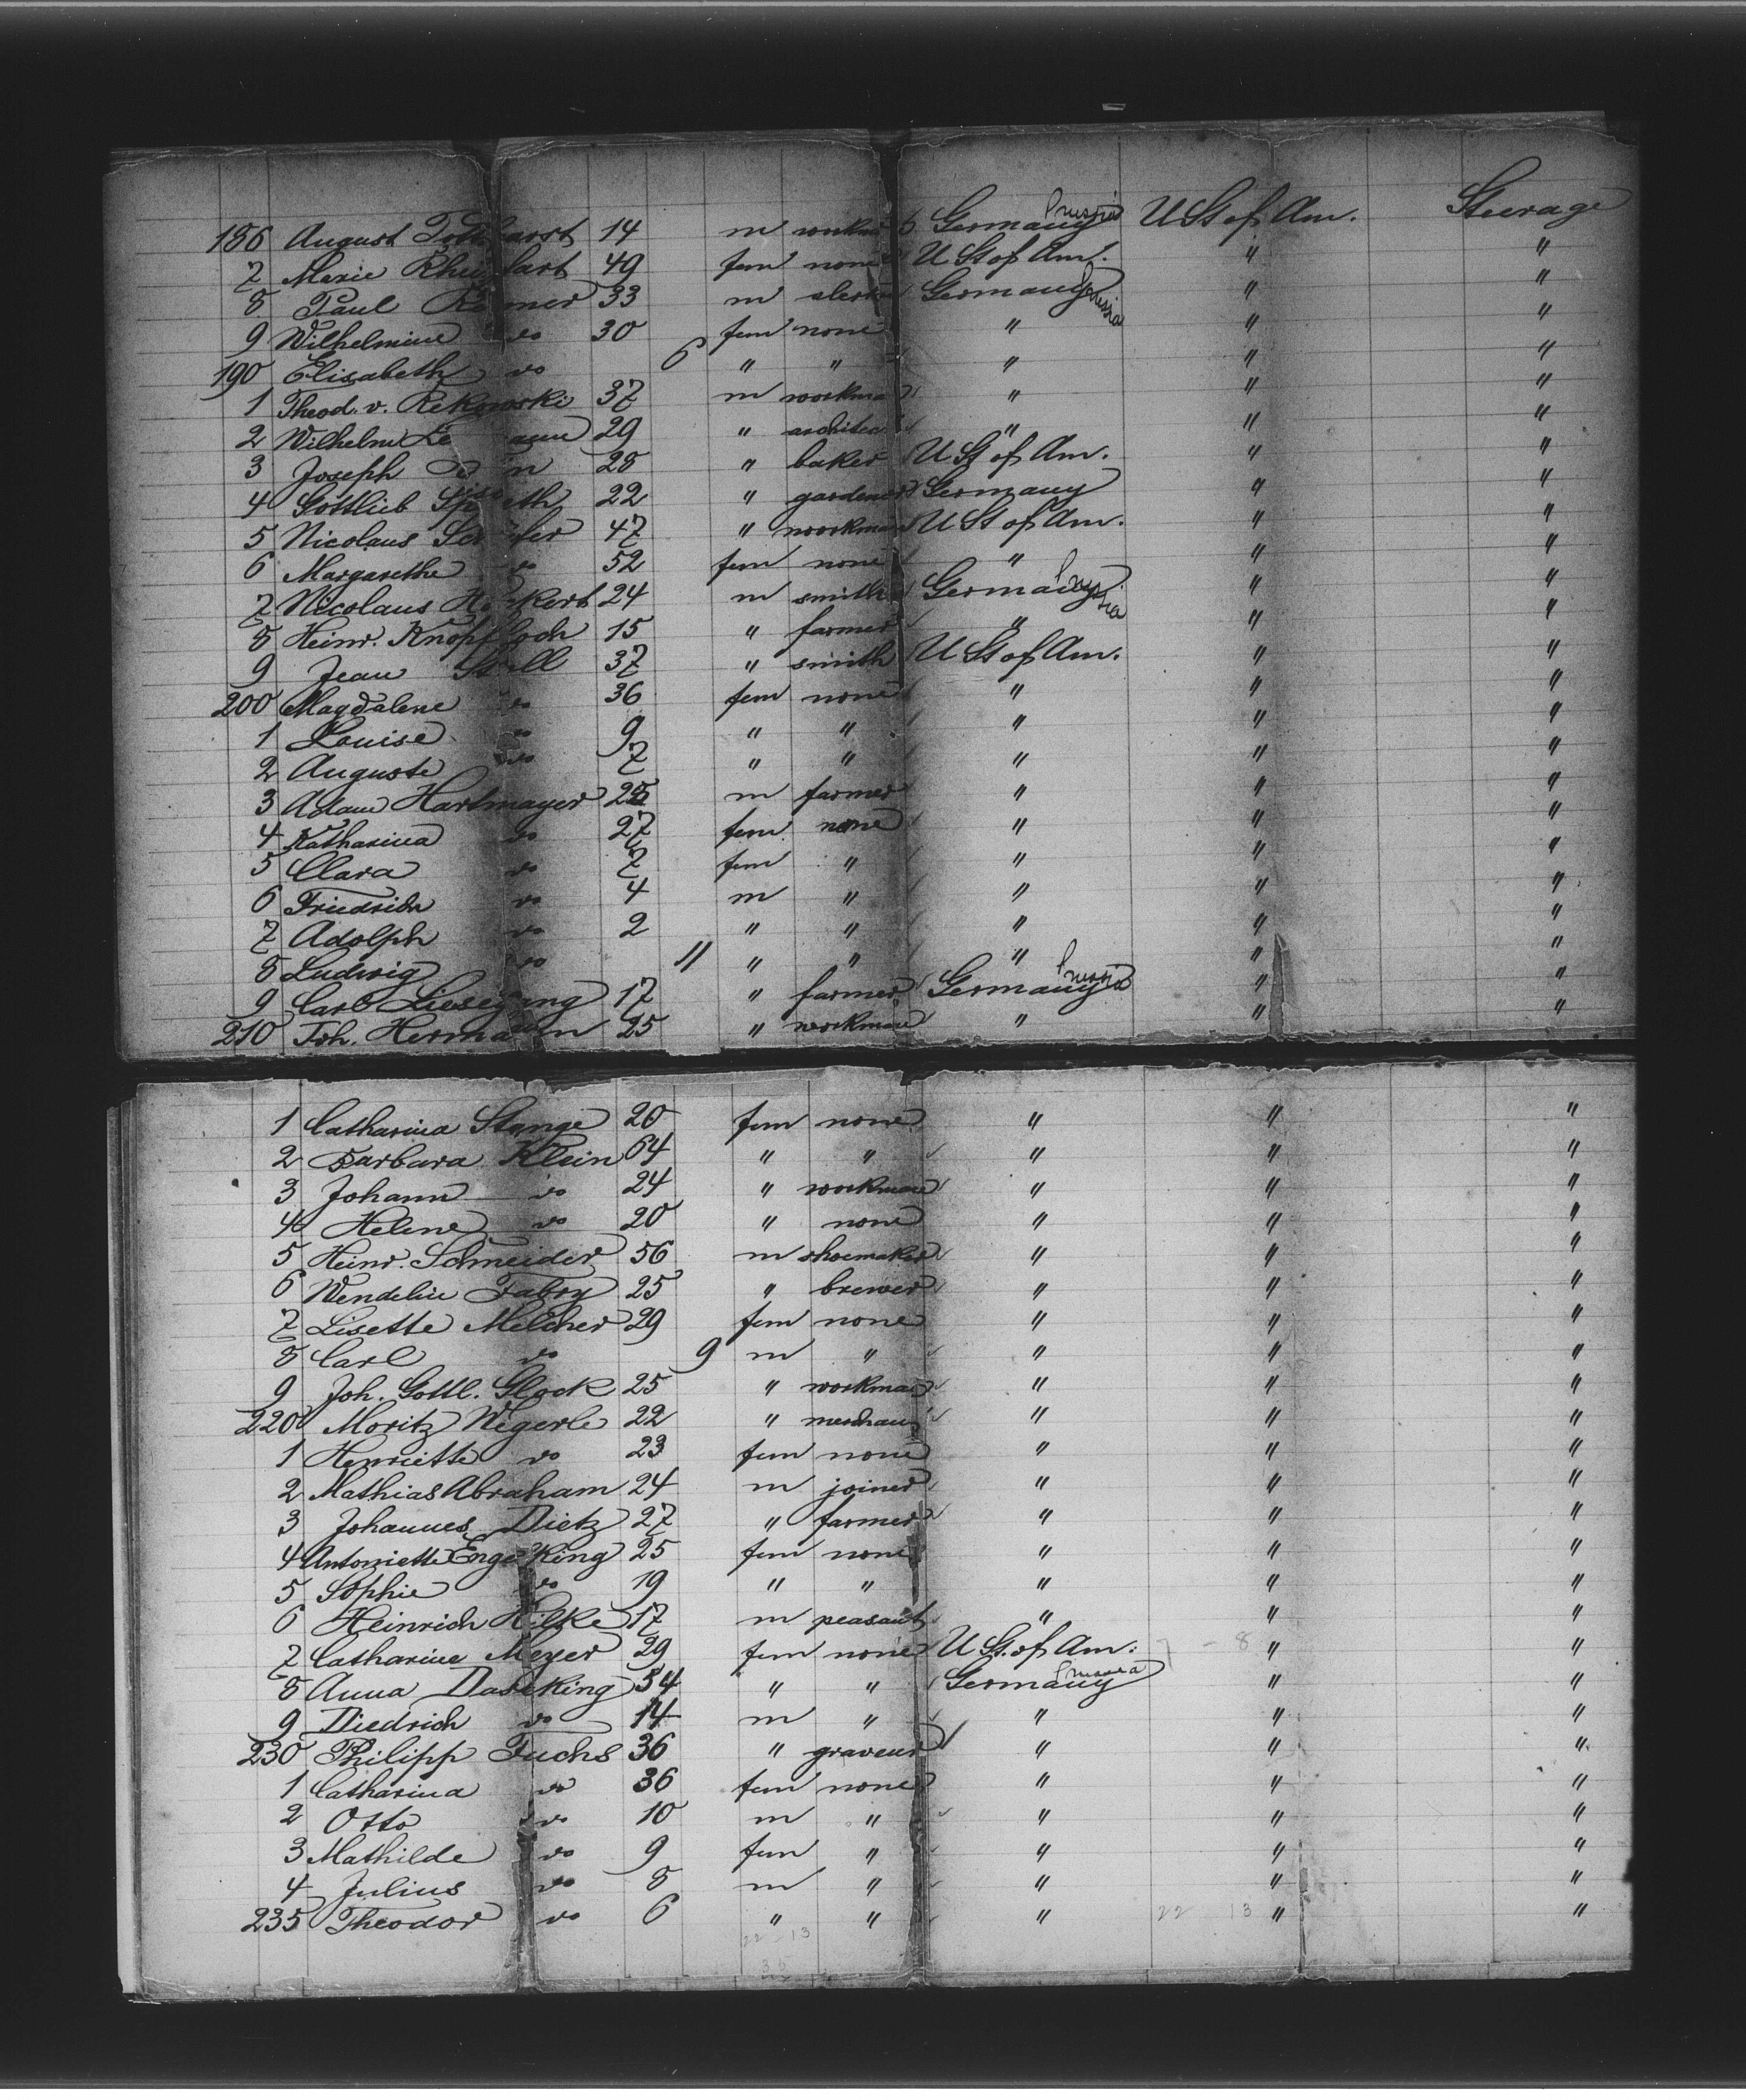 186 August 14 m Germany Prussia U St of Am. Steerage
7 Marie 49 fem none U St of Am. " "
8 Paul 33 m Germany Prussia " "
9 Wilhelmine do 30 fem none " " "
190 Elisabeth do 6 " " " " "
1 Theod. v. Rekowski 37 m workman " " "
2 Wilhelm 29 " architect " " "
3 Joseph 28 " baker U St of Am. " "
4 Gottlieb 22 " gardener Germany " "
5 Nicolaus 47 " workman U St of Am. " "
6 Margarethe do 52 fem none " " "
7 Nicolaus 24 m smith Germany Prussia " "
8 Heinr. 15 " farmer " " "
9 Jean 37 " smith U St of Am. " "
200 Magdalene do 36 fem none " " "
1 Louise do 9 " " " " "
2 Auguste do 7 " " " " "
3 Adam Hartmayer m farmer " " "
4 Katharina do 27 fem none " " "
5 Clara do 7 fem " " " "
6 Friedrich do 4 m " " " "
7 Adolph do 2 " " " " "
8 Ludwig do 11 " " " " "
9 Carl Liesegang 17 " farmer Germany Prussia " "
210 Joh. Hermann 25 " workman " " "
1 Catharina Stange 20 fem none " " "
2 Barbara Klein 64 " " " " "
3 Johann do 24 " workman " " "
4 Helene do 20 " none " " "
5 Heinr. Schneider 56 m shoemaker " " "
6 Wendelin Fabry 25 " brewer " " "
7 Lisette Melcher 29 fem none " " "
8 Carl do 9 m " " " "
9 Joh. Gottl. Glock 25 " workman " " "
220 Moritz Wegerle 22 " merchant " " "
1 Henriette do 23 fem none " " "
2 Mathias Abraham 24 m joiner " " "
3 Johannes Dietz 27 " farmer " " "
4 Antoniette Engelking 25 fem none " " "
5 Sophie do 19 " " " " "
6 Heinrich Hilke 17 m peasant " " "
7 Catharine Meyer 29 fem none U St. of Am. - 8 " "
8 Anna Daseking 54 " " Germany Prussia " "
9 Diedrich do 14 m " " " "
230 Philipp Fuchs 36 " graveur " " "
1 Catharina do 36 fem none " " "
2 Otto do 10 m " " " "
3 Mathilde do 9 fem " " " "
4 Julius do 8 m " " " "
235 Theodor do 6 " " " 22 13 " "
22 - 13
35